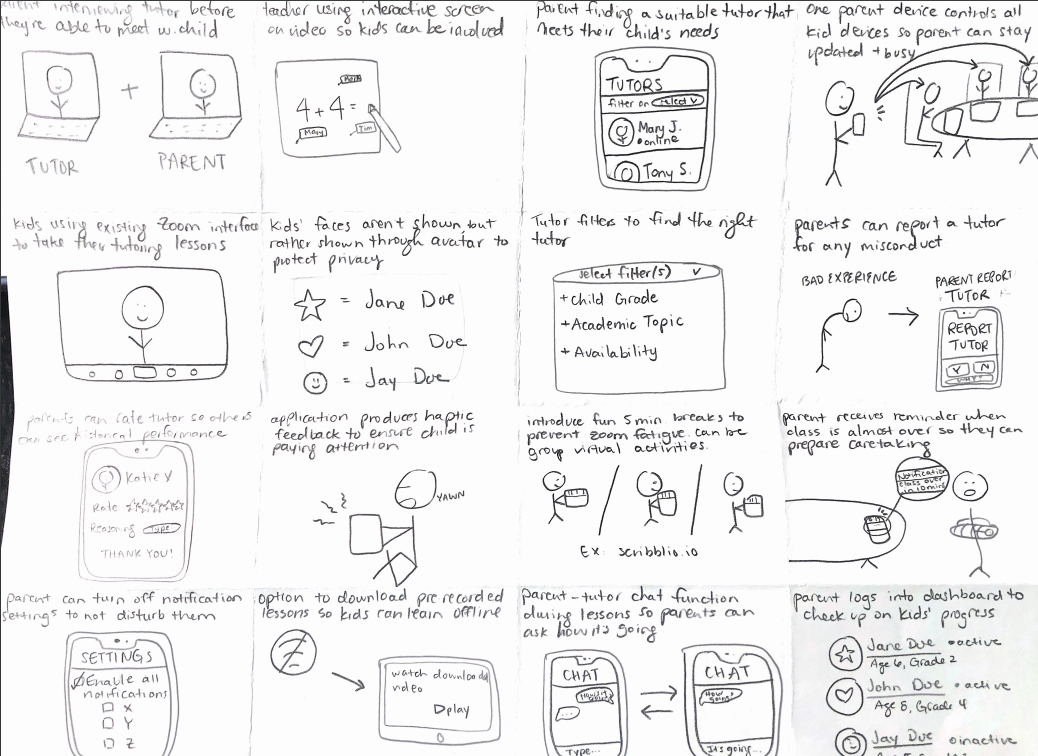 parent interviewing tutor before
they're able to meet w. child
TUTOR
+
PARENT
teacher using interactive screen
on video so kids can be involved
4+4=
Mary
Tim
parent finding a suitable tutor that
meets their child's needs
TUTORS
filter on select v
Mary J.
• online
Tony S.
One parent device controls all
kid devices so parent can stay
updated + busy
kids using existing zoom interface
to take their tutoring lessons
kids' faces arent shown but
rather shown through avatar to
protect privacy
= Jane Doe
= John Doe
= Jay Doe
Tutor filters to find the right
tutor
select filter(s) v
+ Child Grade
+ Academic Topic
+ Availability
parents can report a tutor
for any misconduct
BAD EXPERIENCE
PARENT REPORT
TUTOR
REPORT
TUTOR
Y N
parents can rate tutor so others
can see historical performance
Katie Y
Rate
Reasoning Type
THANK YOU!
application produces haptic
feedback to ensure child is
paying attention
YAWN
introduce fun 5 min. breaks to
prevent zoom fatigue. can be
group virtual activities.
Ex: scribblio.io
parent receives reminder when
class is almost over so they can
prepare caretaking
Notification
class over
in 10 mins
parent can turn off notification
settings to not disturb them
SETTINGS
Enable all
notifications
X
Y
Z
option to download pre recorded
lessons so kids can learn offline
watch downloaded
video
play
parent-tutor chat function
during lessons so parents can
ask how it's going
CHAT
How's it
going?
...
Type...
CHAT
How's it
going?
It's going...
parent logs into dashboard to
check up on kids' progress
Jane Doe • active
Age 6, Grade 2
John Doe • active
Age 8, Grade 4
Jay Doe o inactive